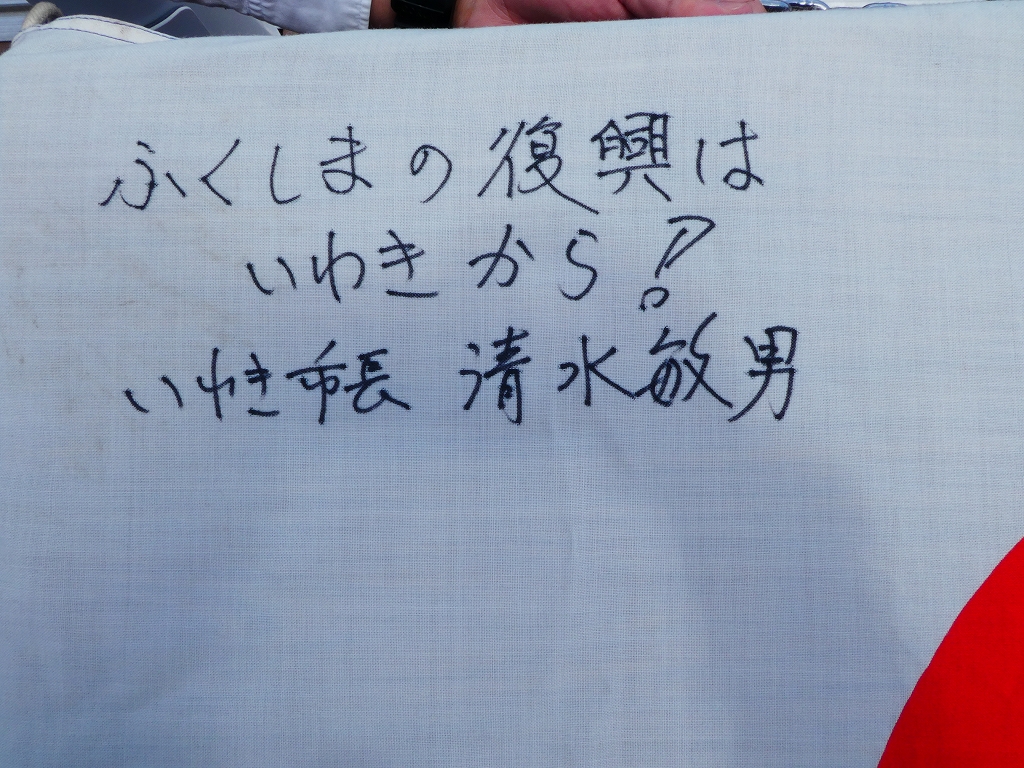 ふくしまの復興は
いわきから?
いわき市長 清水敏男